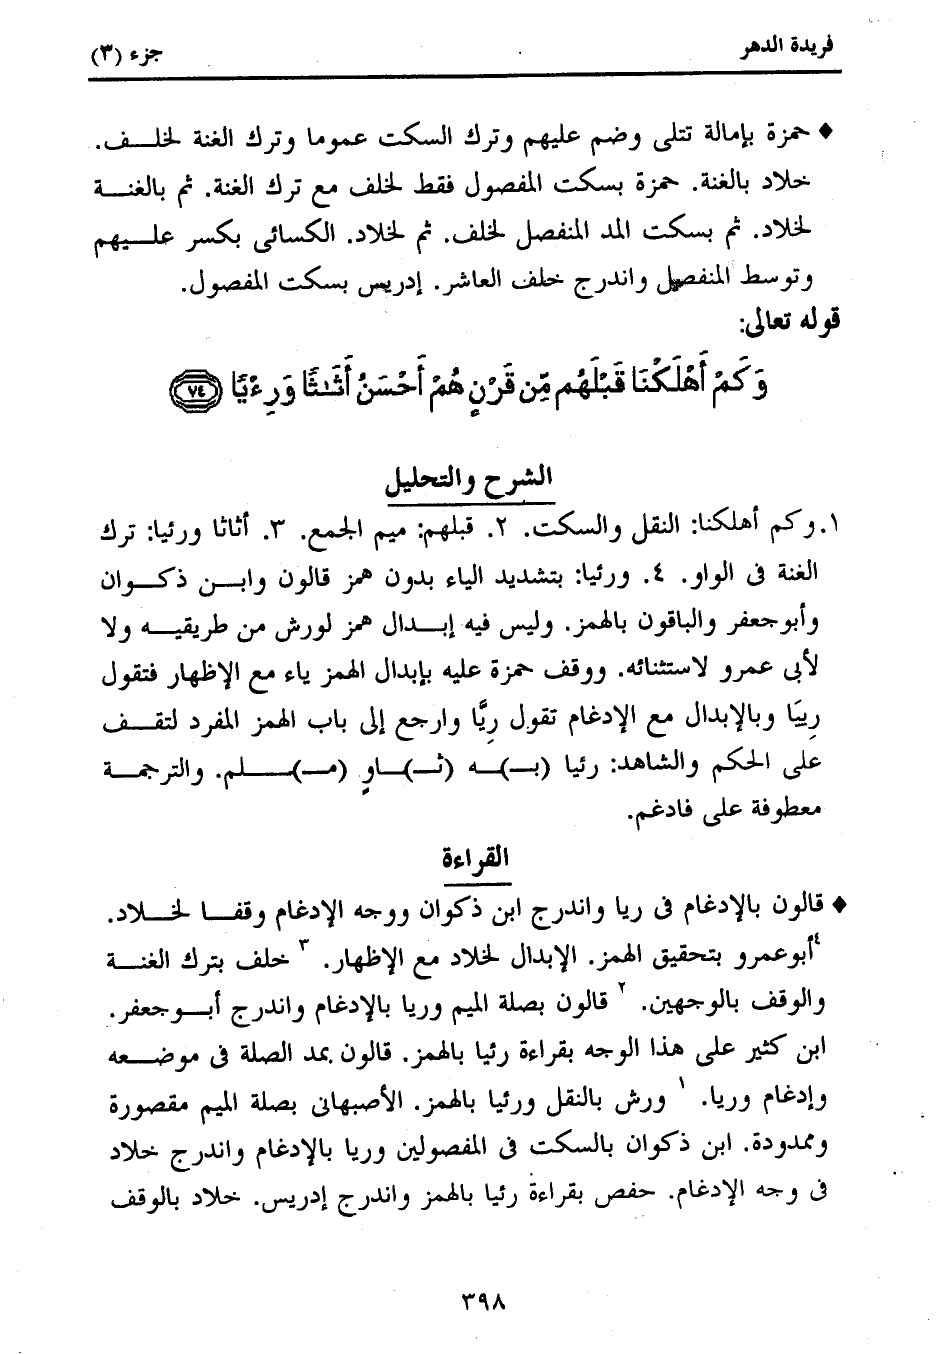 فريدة الدهر
جزء (٣)
♦ حمزة بإمالة تتلى وضم عليهم وترك السكت عموما وترك الغنة لخلــف.
خلاد بالغنة. حمزة بسكت المفصول فقط لخلف مع ترك الغنة. ثم بالغنــة
لخلاد. ثم بسكت المد المنفصل لخلف. ثم لخلاد. الكسائى بكسر علــيهم
وتوسط المنفصل واندرج خلف العاشر. إدريس بسكت المفصول.
قوله تعالى:
وَكَمْ أَهْلَكْنَا قَبْلَهُم مِّن قَرْنٍ هُمْ أَحْسَنُ أَثَـٰثًا وَرِءْيًا ٧٤
الشرح والتحليل
١. وكم أهلكنا: النقل والسكت. ٢. قبلهم: ميم الجمع. ٣. أثاثا ورئيا: ترك
الغنة فى الواو. ٤. ورئيا: بتشديد الياء بدون همز قالون وابــن ذكــوان
وأبوجعفر والباقون بالهمز. وليس فيه إبــدال همز لورش من طريقيــه ولا
لأبى عمرو لاستثنائه. ووقف حمزة عليه بإبدال الهمز ياء مع الإظهار فتقول
رِييَا وبالإبدال مع الإدغام تقول رِيًّا وارجع إلى باب الهمز المفرد لتقــف
على الحكم والشاهد: رئيا (بــ)ــه (ثــ)ــاوٍ (مــ)ــلم. والترجمــة
معطوفة على فادغم.
القراءة
♦ قالون بالإدغام فى ريا واندرج ابن ذكوان ووجه الإدغام وقفــا لخــلاد.
٤ أبوعمرو بتحقيق الهمز. الإبدال لخلاد مع الإظهار. ٣ خلف بترك الغنــة
والوقف بالوجهين. ٢ قالون بصلة الميم وريا بالإدغام واندرج أبــوجعفر.
ابن كثير على هذا الوجه بقراءة رئيا بالهمز. قالون بمد الصلة فى موضــعه
وإدغام وريا. ١ ورش بالنقل ورئيا بالهمز. الأصبهانى بصلة الميم مقصورة
وممدودة. ابن ذكوان بالسكت فى المفصولين وريا بالإدغام واندرج خلاد
فى وجه الإدغام. حفص بقراءة رئيا بالهمز واندرج إدريس. خلاد بالوقف
٣٩٨